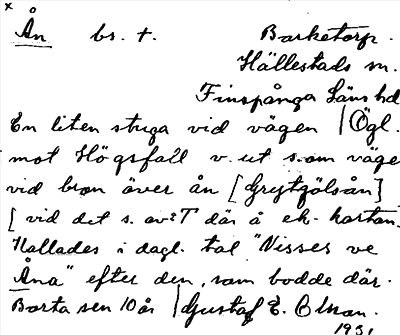 x
Ån bs. t. Barketorp.
Hällestads sn.
Finspånga Läns hd
En liten stuga vid vägen | Ögl.
mot Högsfall v. ut som väge
vid bron över ån [Grytgölsån]
[vid det s. av T där å ek. kartan.
Kallades i dagl. tal "Nisses ve
Åna" efter den, som bodde där.
Borta sen 10 år | Gustaf E. Olson.
1931